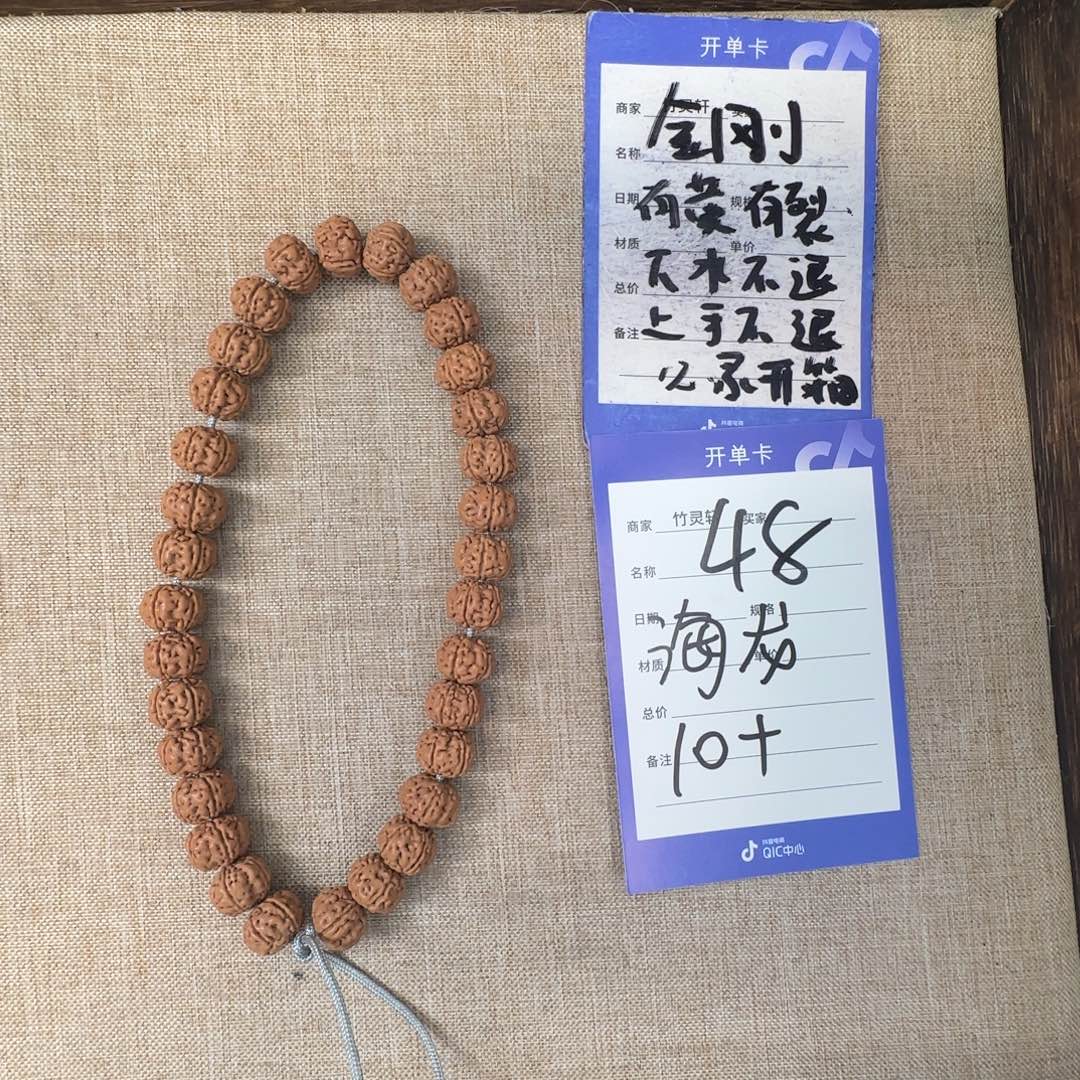 开单卡
商家
金刚
名称
日期 规格
有裂
材质 单价
下水不退
总价
上手不退
备注
录开箱
抖音电商
开单卡
商家 竹灵轩 买家
48
名称
日期 规格
材质 单价
海龙
总价
备注
10+
抖音电商
QIC中心